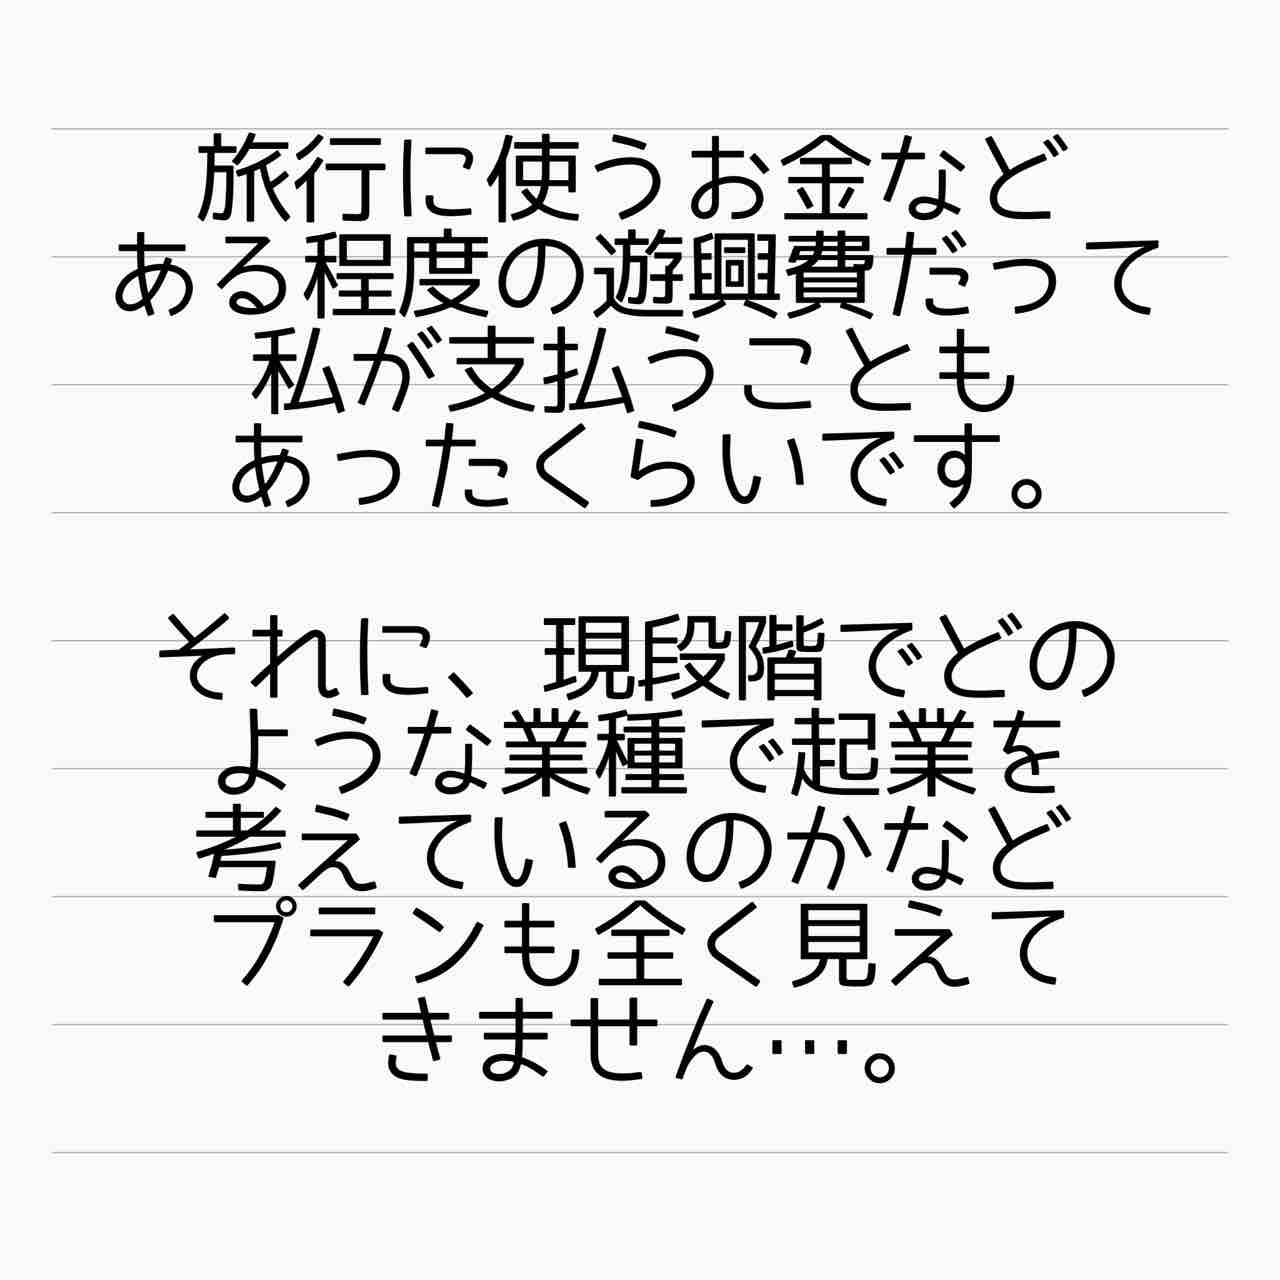 旅行に使うお金など
ある程度の遊興費だって
私が支払うことも
あったくらいです。
それに、現段階でどの
ような業種で起業を
考えているのかなど
プランも全く見えて
きません…。